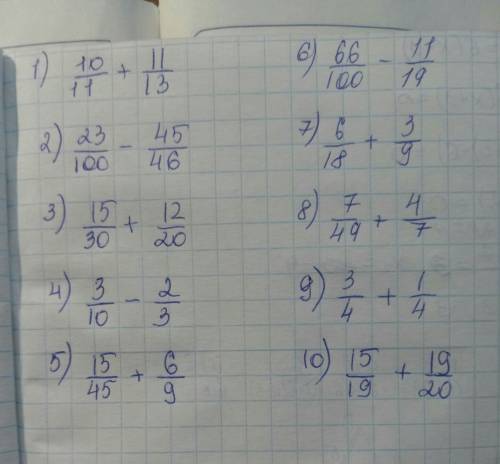 1) 10/11 + 11/13
2) 23/100 - 45/46
3) 15/30 + 12/20
4) 3/10 - 2/3
5) 15/45 + 6/9
6) 66/100 - 11/19
7) 6/18 + 3/9
8) 7/49 + 4/7
9) 3/4 + 1/4
10) 15/19 + 19/20